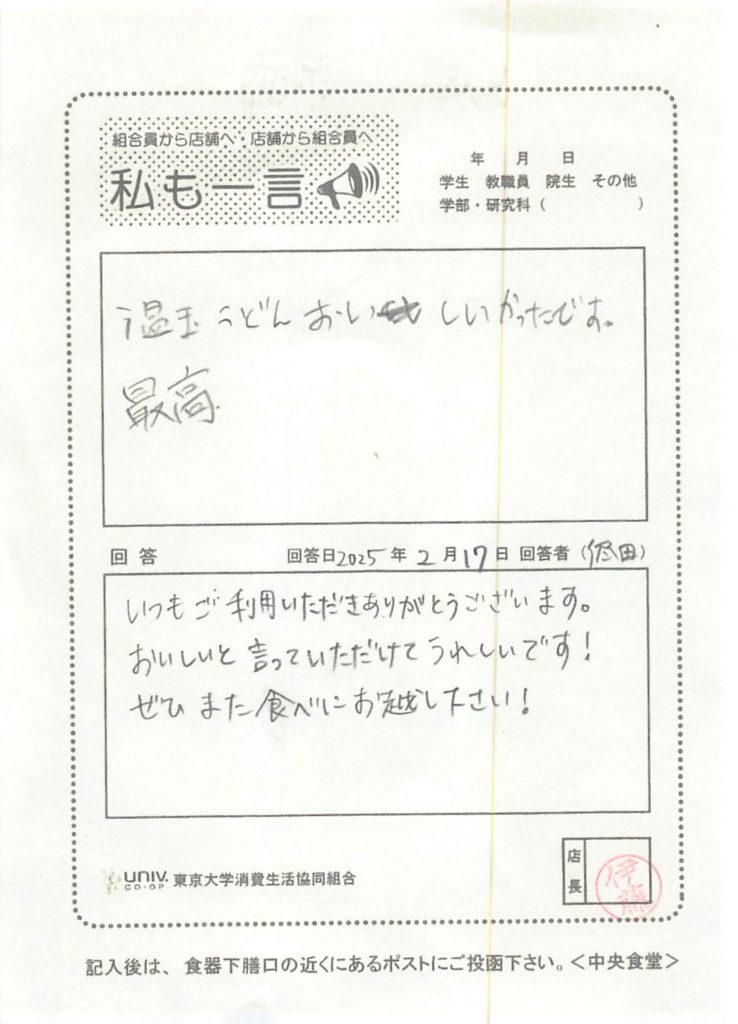 組合員から店舗へ・店舗から組合員へ
私も一言
年 月 日
学生 教職員 院生 その他
学部・研究科( )
温玉うどん おいしいかったです。
最高
回答 回答日2025年2月17日 回答者(田)
いつもご利用いただきありがとうございます。
おいしいと言っていただけてうれしいです!
ぜひまた食べにお越し下さい!
UNIV. CO-OP 東京大学消費生活協同組合
店長
伊藤
記入後は、食器下膳口の近くにあるポストにご投函下さい。<中央食堂>